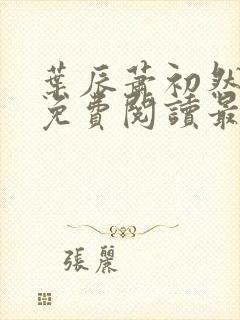 葉辰蕭初然
免費閱讀最
張麗